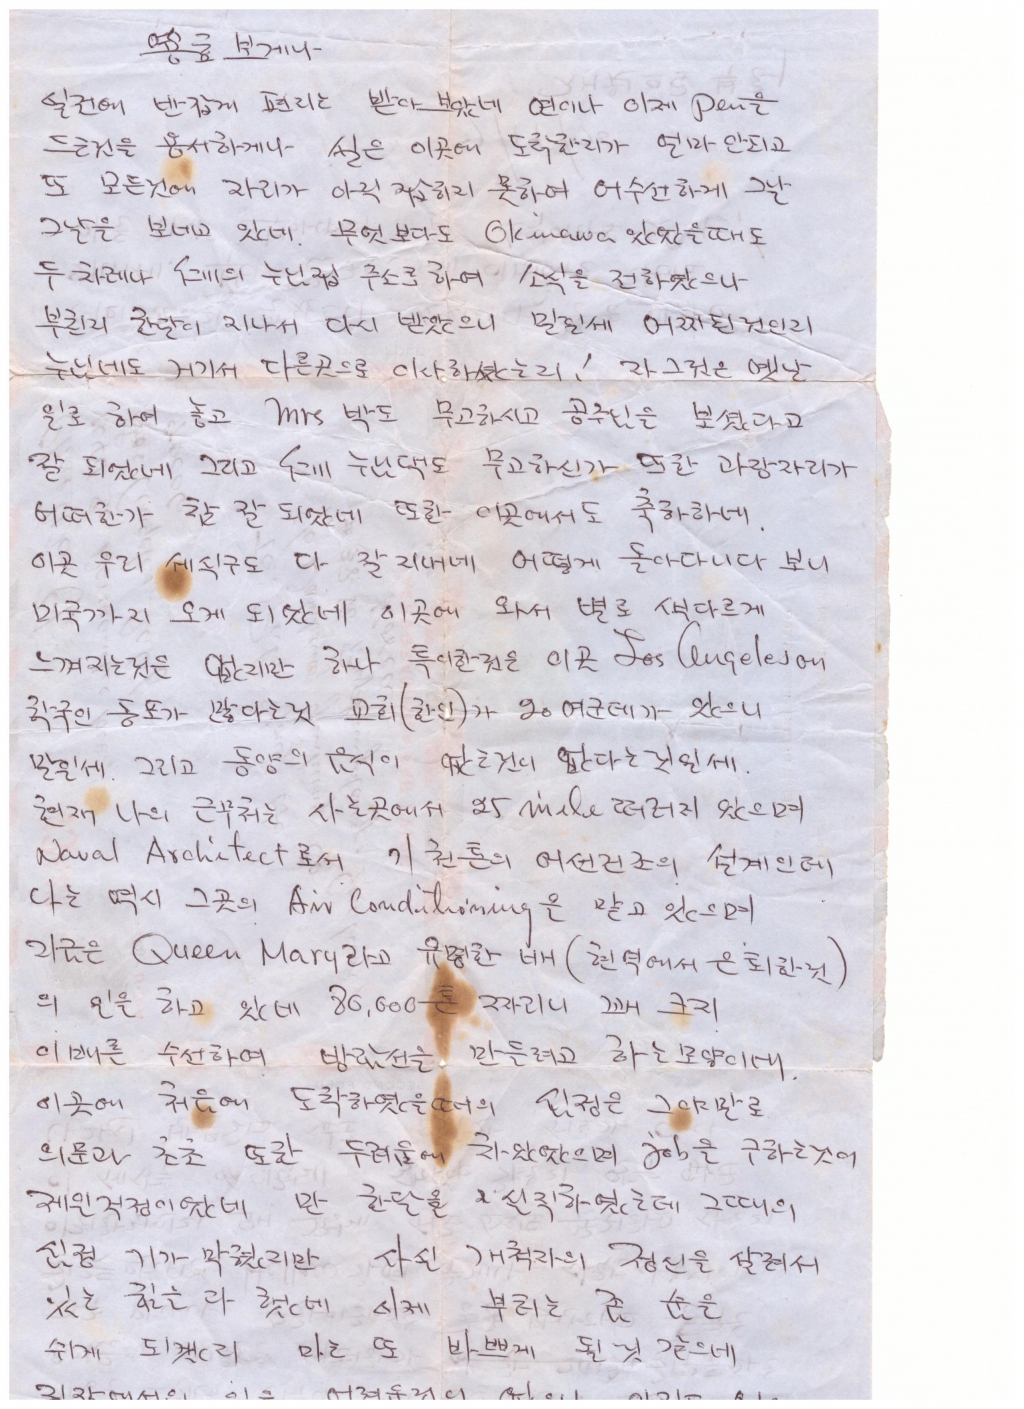 용금 보게나
실전에 반갑게 편지는 받아 보았네 연이나 이제 pen을
드는것을 용서하게나 실은 이곳에 도착한지가 얼마 안되고
또 모든것에 자리가 아직 잡히지 못하여 어수선하게 그날
그날을 보내고 있네. 무엇보다도 Okinawa 있었을때도
두차례나 누님집 주소로 하여 소식을 전하였으나
한달이 지나서 다시 받았으니 말일세 어찌된것인지
누님네도 거기서 다른곳으로 이사하였는지! 자 그것은 옛날
일로 하여 놓고 Mrs 박도 무고하시고 공주님을 보셨다고
잘 되었네 그리고 누님댁도 무고하신가 또한 과장자리가
어떠한가 참 잘 되었네 또한 이곳에서도 축하하네.
이곳 우리 세식구도 다 잘지내네 어떻게 돌아다니다 보니
미국까지 오게 되었네 이곳에 와서 별로 색다르게
느껴지는것은 없지만 하나 특이한것은 이곳 Los Angeles에
한국인 동포가 많다는것 교회(한인)가 20여군데가 있으니
말일세. 그리고 동양의 음식이 없는것이 없다는것일세.
현재 나의 근무처는 사는곳에서 25 mile 떨어져 있으며
Naval Architect로서 기천톤의 어선건조의 설계인데
나는 역시 그곳의 Air Conditioning을 맡고 있으며
지금은 Queen Mary라고 유명한 배(현역에서 은퇴한것)
의 일을 하고 있네 80,000톤 짜리니 꽤 크지
이배를 수선하여 만들려고 하는모양이네.
이곳에 처음에 도착하였을때의 심정은 그야말로
의문과 초초 또한 두려움에 차있었으며 job을 구하는것이
제일걱정이었네 만 한달을 실직하였는데 그때의
심정 기가 막혔지만 사실 개척자의 정신을 살려서
있는 힘을 다 했네 이제 부터는 좀 숨은
쉬게 되겠지 마는 또 바쁘게 된것 같으네